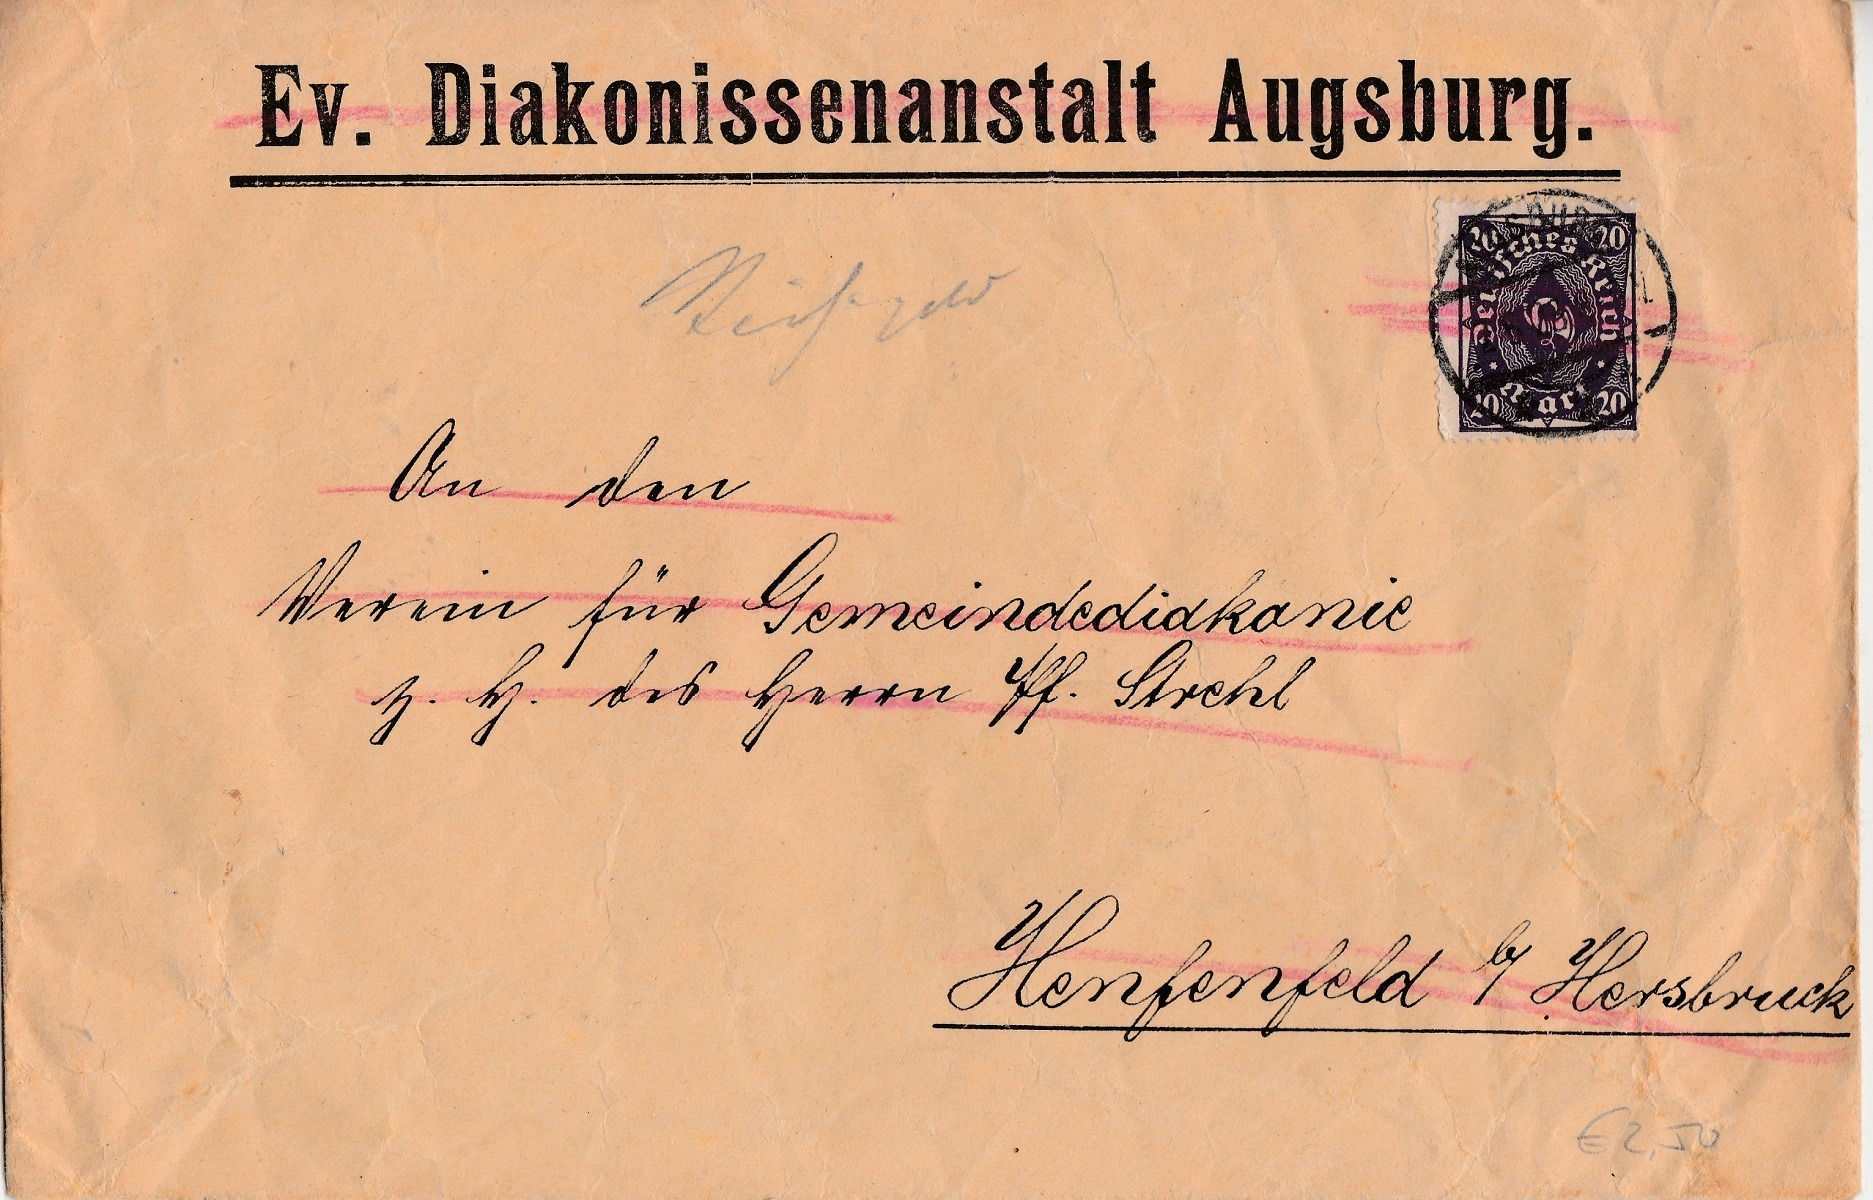 Ev. Diakonissenanstalt Augsburg.
20 20
Deutsches Reich
Mark
20 20
An den
Verein für Gemeindediakonie
z. H. des Herrn Pf. Strehl
Henfenfeld b/ Hersbruck
€ 2,50